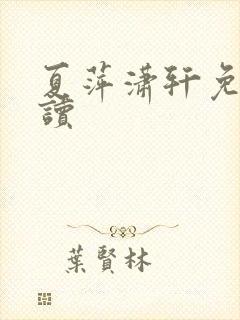 夏萍瀟軒免
讀
葉賢林